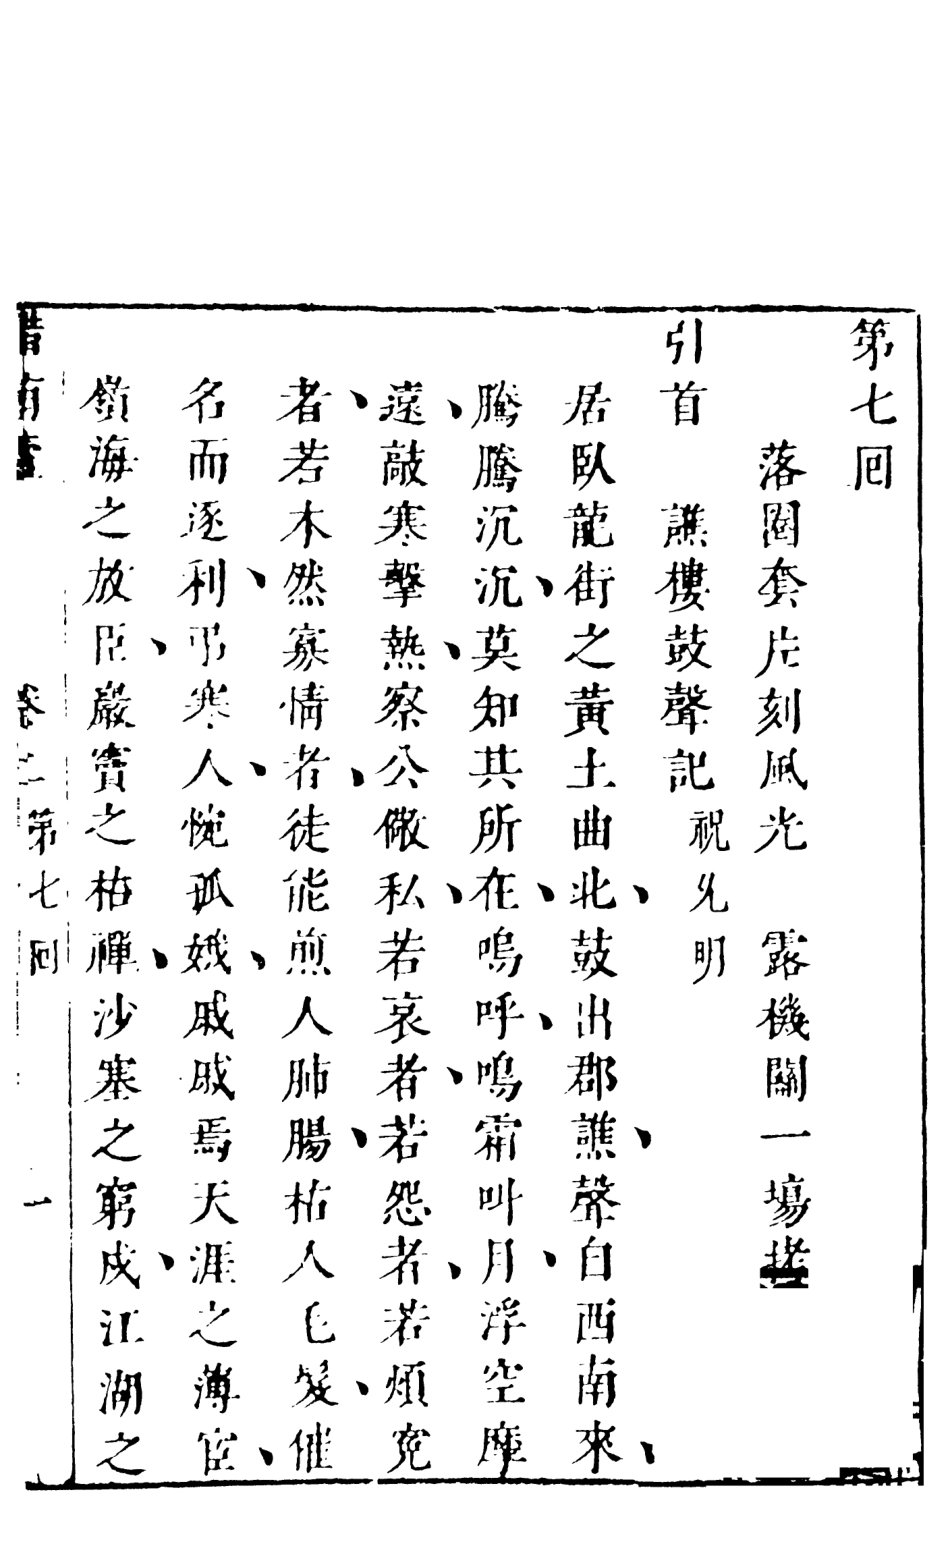 第七回
落圈套片刻風光　露機關一場拷
引首　譙樓鼓聲記　祝允明
居臥龍街之黃土曲北、鼓出郡譙、聲自西南來、
騰騰沉沉、莫知其所在、嗚呼、鳴霜叫月、浮空摩
遠、敲寒擊熱、察公儆私、若哀者、若怨者、若煩寃
者、若木然寡情者、徒能煎人肺腸、枯人毛髮、催
名而逐利、弔寒人、惋孤娥、戚戚焉天涯之薄宦、
嶺海之放臣、巖竇之枯禪、沙塞之窮戍、江湖之
卷二　第七回　一